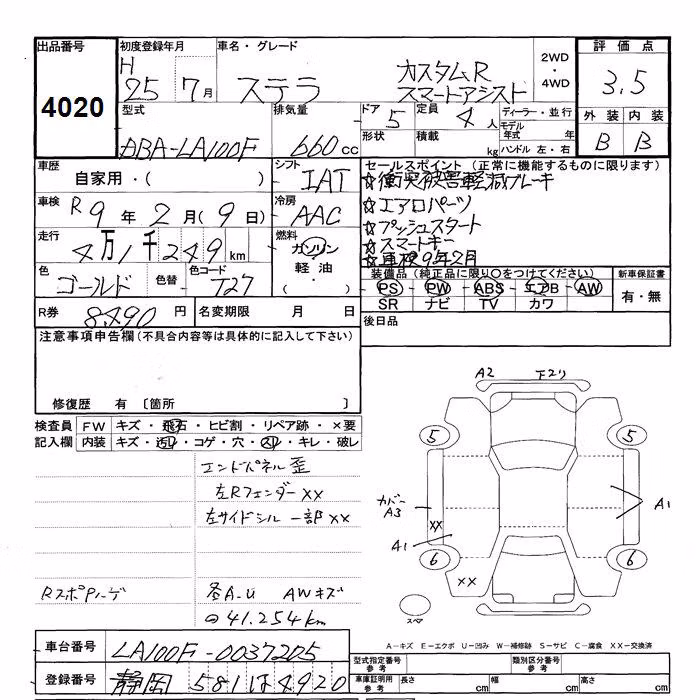 出品番号
4020
初度登録年月
H 25 7月
車名・グレード
ステラ
カスタムR
スマートアシスト
2WD
・
4WD
評価点
3.5
外装 内装
B B
型式
DBA-LA100F
排気量
660cc
ドア
5
形状
定員
4人
積載
kg
ディーラー・並行
モデル年式 年
ハンドル 左・右
車歴
自家用・( )
シフト
IAT
車検
R9年2月(9日)
冷房
AAC
走行
4万1千249km
燃料
ガソリン
軽油
・
( )
色
ゴールド
色替
色コード
T27
R券
8490円
名変期限 月 日
セールスポイント(正常に機能するものに限ります)
☆衝突被害軽減ブレーキ
☆エアロパーツ
☆プッシュスタート
☆スマートキー
☆車検9年2月
装備品(純正品に限り○をつけてください)
PS PW ABS エアB AW
SR ナビ TV カワ
新車保証書
有・無
後日品
注意事項申告欄(不具合内容等は具体的に記入して下さい)
修復歴 有〔箇所 〕
検査員記入欄
FW キズ・飛石・ヒビ割・リペア跡・×要
内装 キズ・汚レ・コゲ・穴・スレ・キレ・破レ
エンドパネル歪
左Rフェンダーxx
左サイドシル一部xx
各A-U AWキズ
41.254km
A2 下スリ
5 5
カバー
A3
xx
A1
A1
6 6
xx
スペア
A-キズ E-エクボ U-凹み W-補修跡 S-サビ C-腐食 XX-交換済
車台番号
LA100F-0037205
登録番号
静岡 581 ほ 4920
型式指定番号
参考
類別区分番号
参考
車庫証明用
参考
長さ cm
幅 cm
高さ cm